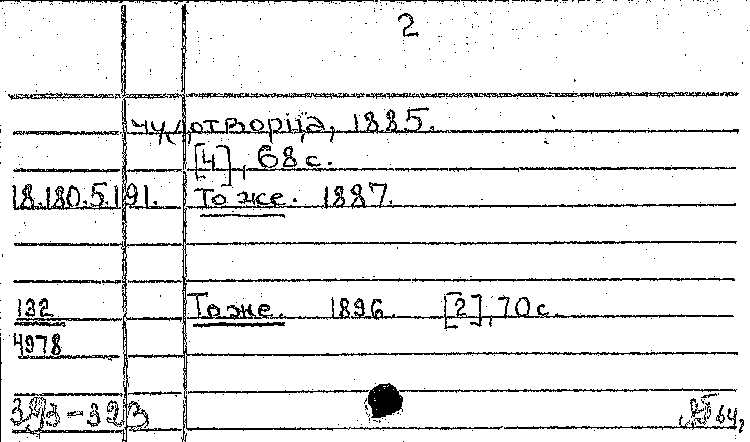 2
чудотворца, 1885.
[4], 68 с.
18.180.5.191. То же. 1887.
132 То же. 1896. [2], 70 с.
4978